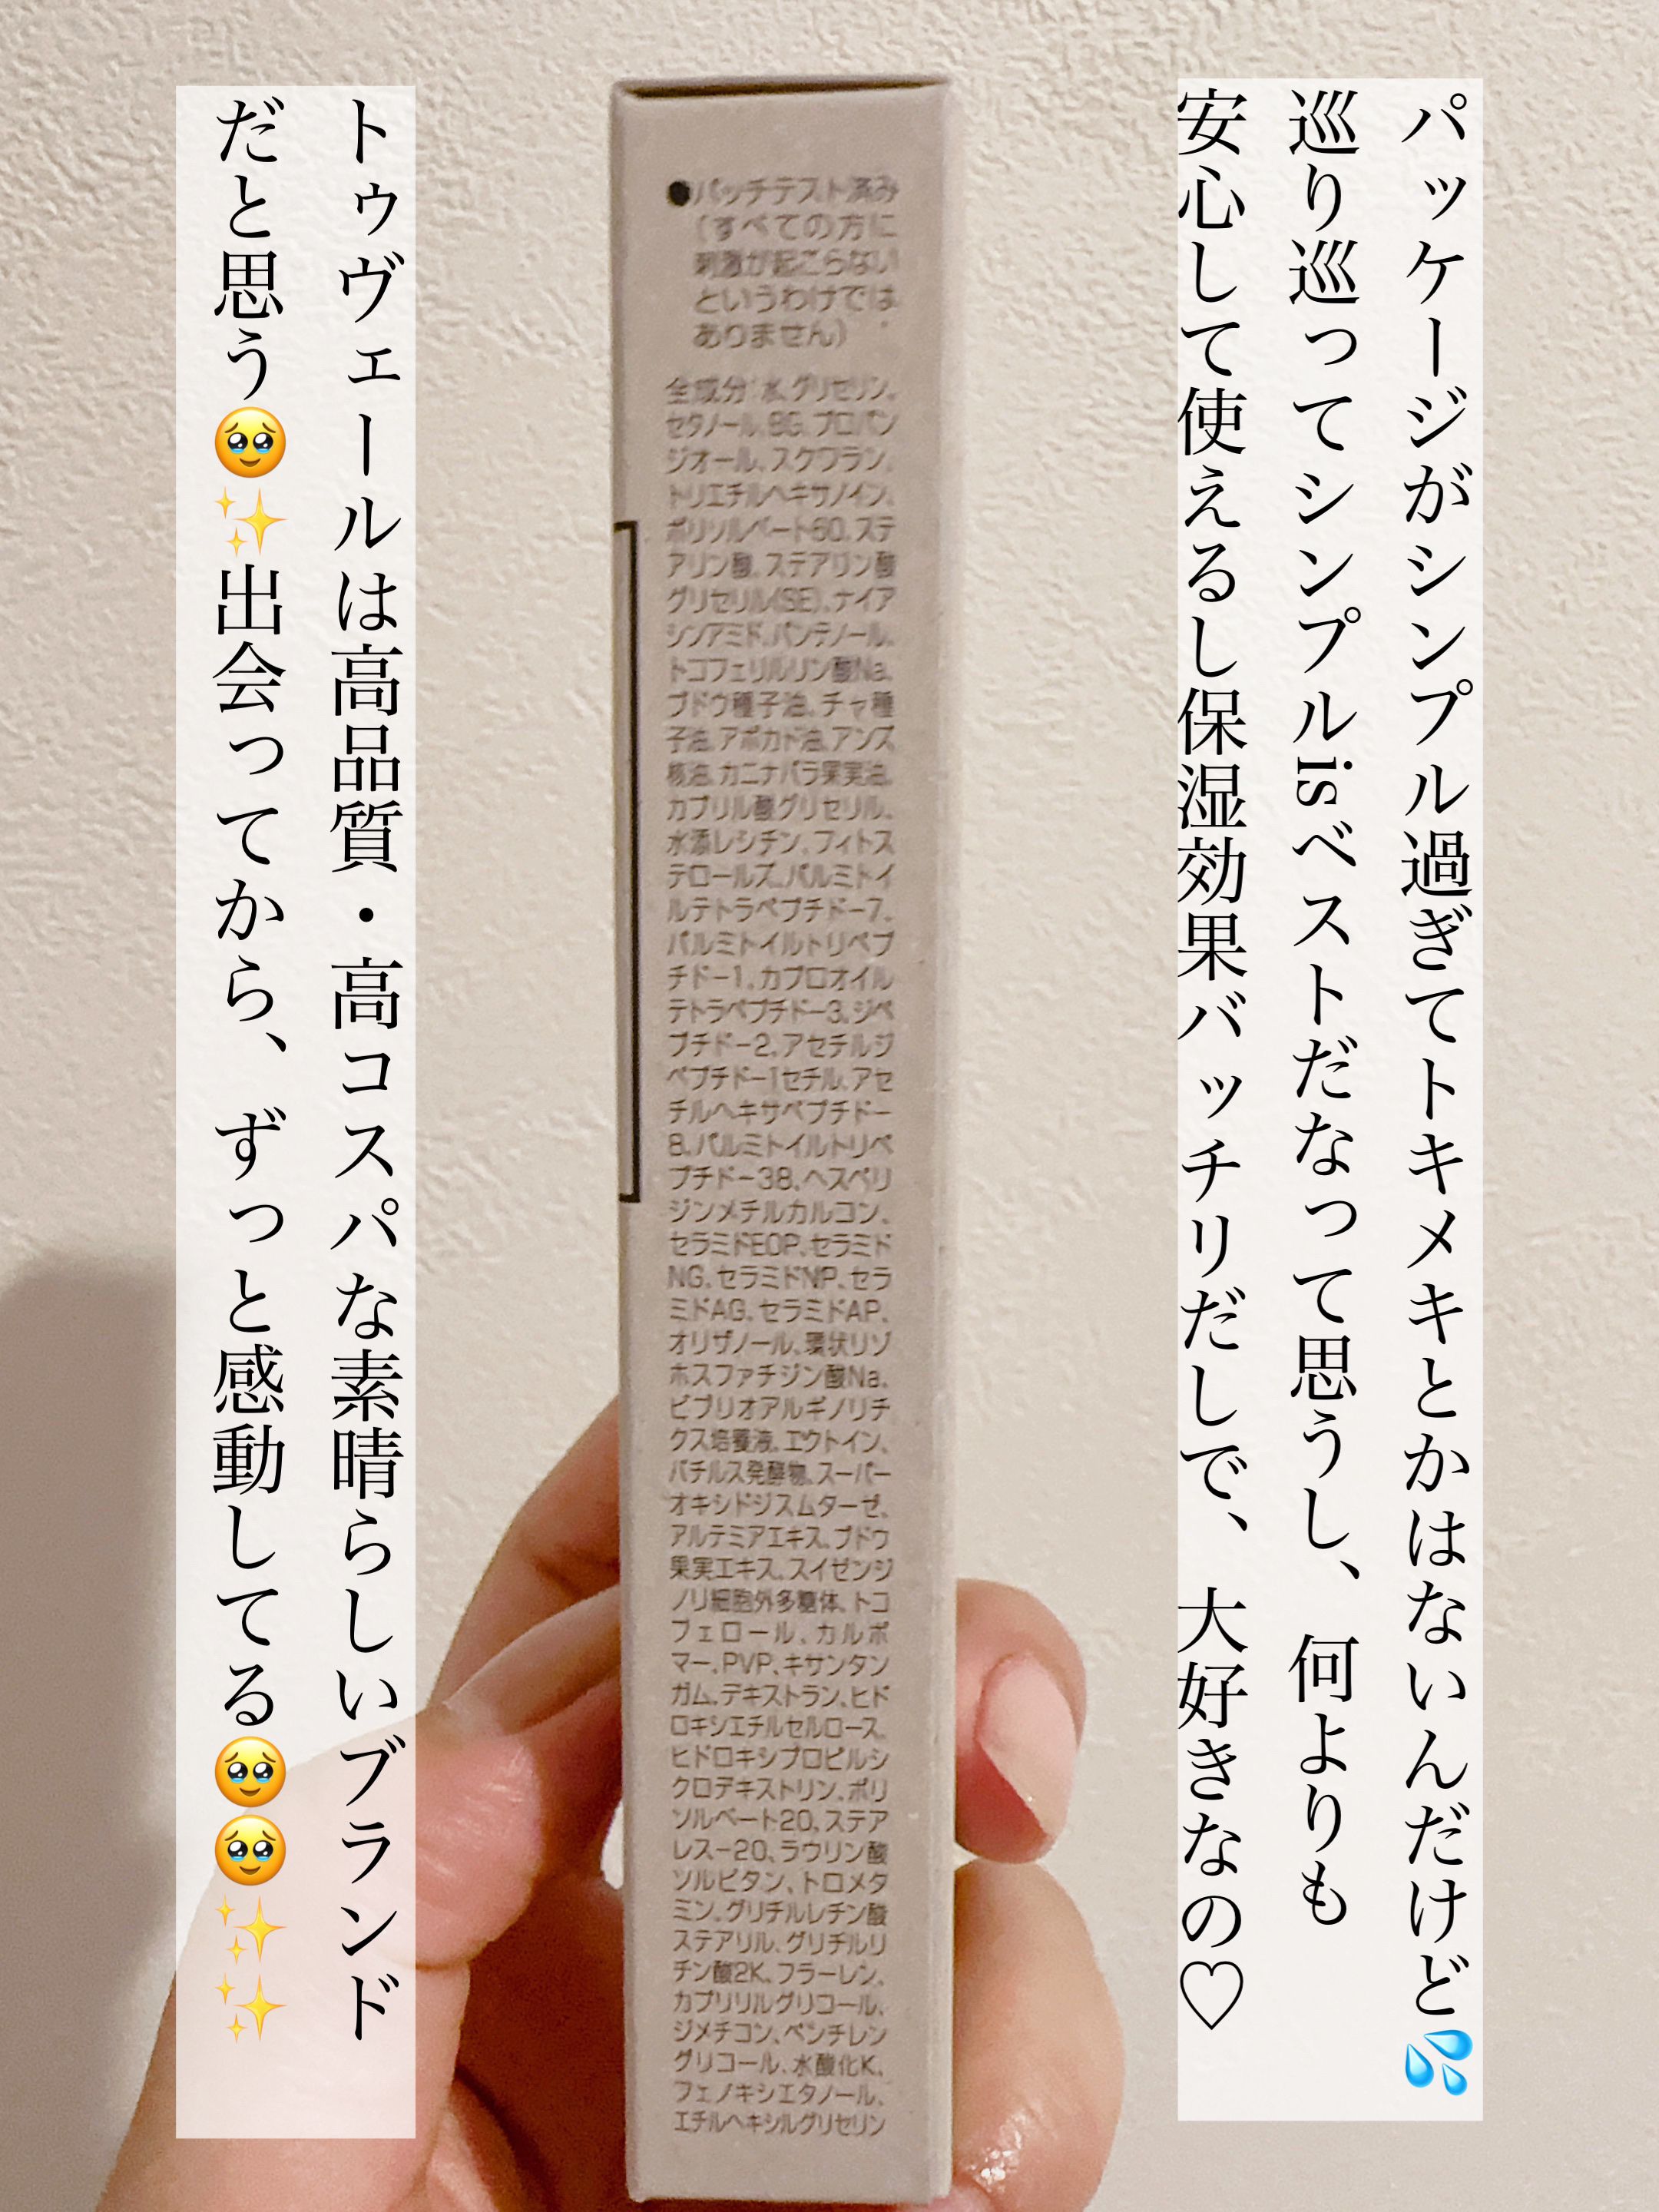 パッケージがシンプル過ぎてトキメキとかはないんだけど💦
巡り巡ってシンプルisベストだなって思うし、何よりも
安心して使えるし保湿効果バッチリだしで、大好きなの♡
●パッチテスト済み
(すべての方に
刺激が起こらない
というわけでは
ありません)
全成分:水、グリセリン、
セタノール、BG、プロパン
ジオール、スクワラン、
トリエチルヘキサノイン、
ポリソルベート60、ステ
アリン酸、ステアリン酸
グリセリル(SE)、ナイア
シンアミド、パンテノール、
トコフェリルリン酸Na、
ブドウ種子油、チャ種
子油、アボカド油、アンズ
核油、カニナバラ果実油、
カプリル酸グリセリル、
水添レシチン、フィトス
テロールズ、パルミトイ
ルテトラペプチド-7、
パルミトイルトリペプ
チド-1、カプロオイル
テトラペプチド-3、ジペ
プチド-2、アセチルジ
ペプチド-1セチル、アセ
チルヘキサペプチド-
8、パルミトイルトリペ
プチド-38、ヘスペリ
ジンメチルカルコン、
セラミドEOP、セラミド
NG、セラミドNP、セラ
ミドAG、セラミドAP、
オリザノール、環状リゾ
ホスファチジン酸Na、
ビブリオアルギノリチ
クス培養液、エクトイン、
バチルス発酵物、スーパー
オキシドジスムターゼ、
アルテミアエキス、ブドウ
果実エキス、スイゼンジ
ノリ細胞外多糖体、トコ
フェロール、カルボ
マー、PVP、キサンタン
ガム、デキストラン、ヒド
ロキシエチルセルロース、
ヒドロキシプロピルシ
クロデキストリン、ポリ
ソルベート20、ステア
レス-20、ラウリン酸
ソルビタン、トロメタ
ミン、グリチルレチン酸
ステアリル、グリチルリ
チン酸2K、フラーレン、
カプリリルグリコール、
ジメチコン、ペンチレン
グリコール、水酸化K、
フェノキシエタノール、
エチルヘキシルグリセリン
トゥヴェールは高品質・高コスパな素晴らしいブランド
だと思う🥹✨出会ってから、ずっと感動してる🥹🥹✨✨